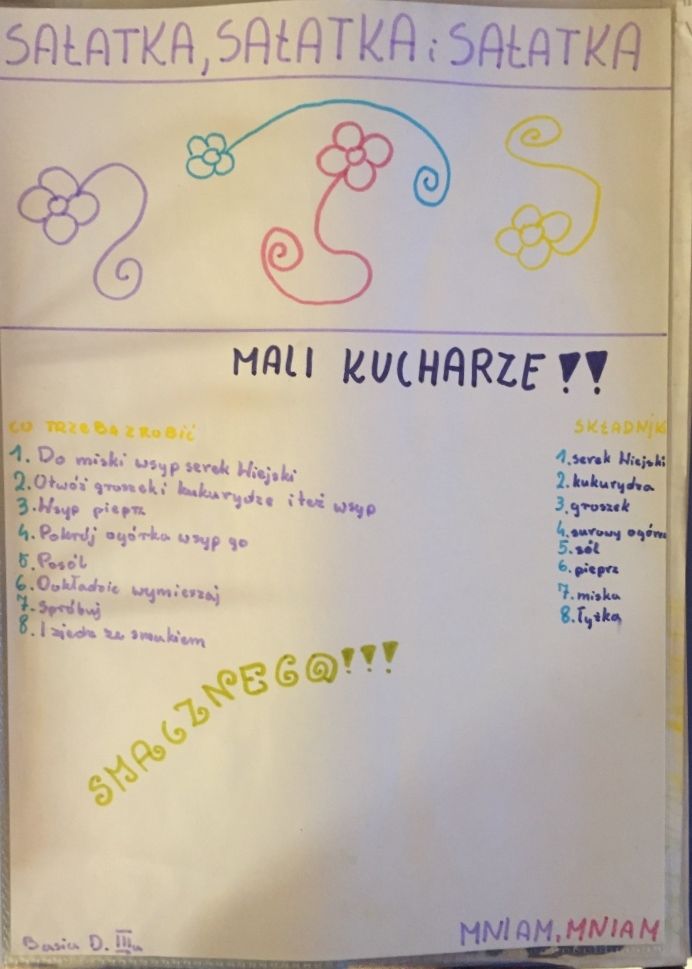 SAŁATKA, SAŁATKA i SAŁATKA
MALI KUCHARZE!!
CO TRZEBA ZROBIĆ
1. Do miski wsyp serek Wiejski
2. Otwóż groszek i kukurydze i też wsyp
3. Wsyp pieprz
4. Pokrój ogórka wsyp go
5. Posól
6. Dokładnie wymieszaj
7. Spróbuj
8. I zjedz ze smakiem
SKŁADNIK
1. serek Wiejski
2. kukurydza
3. groszek
4. surowy ogóre
5. sól
6. pieprz
7. miska
8. łyżka
SMACZNEGO!!!
MNIAM, MNIAM
Basia D. IIIa